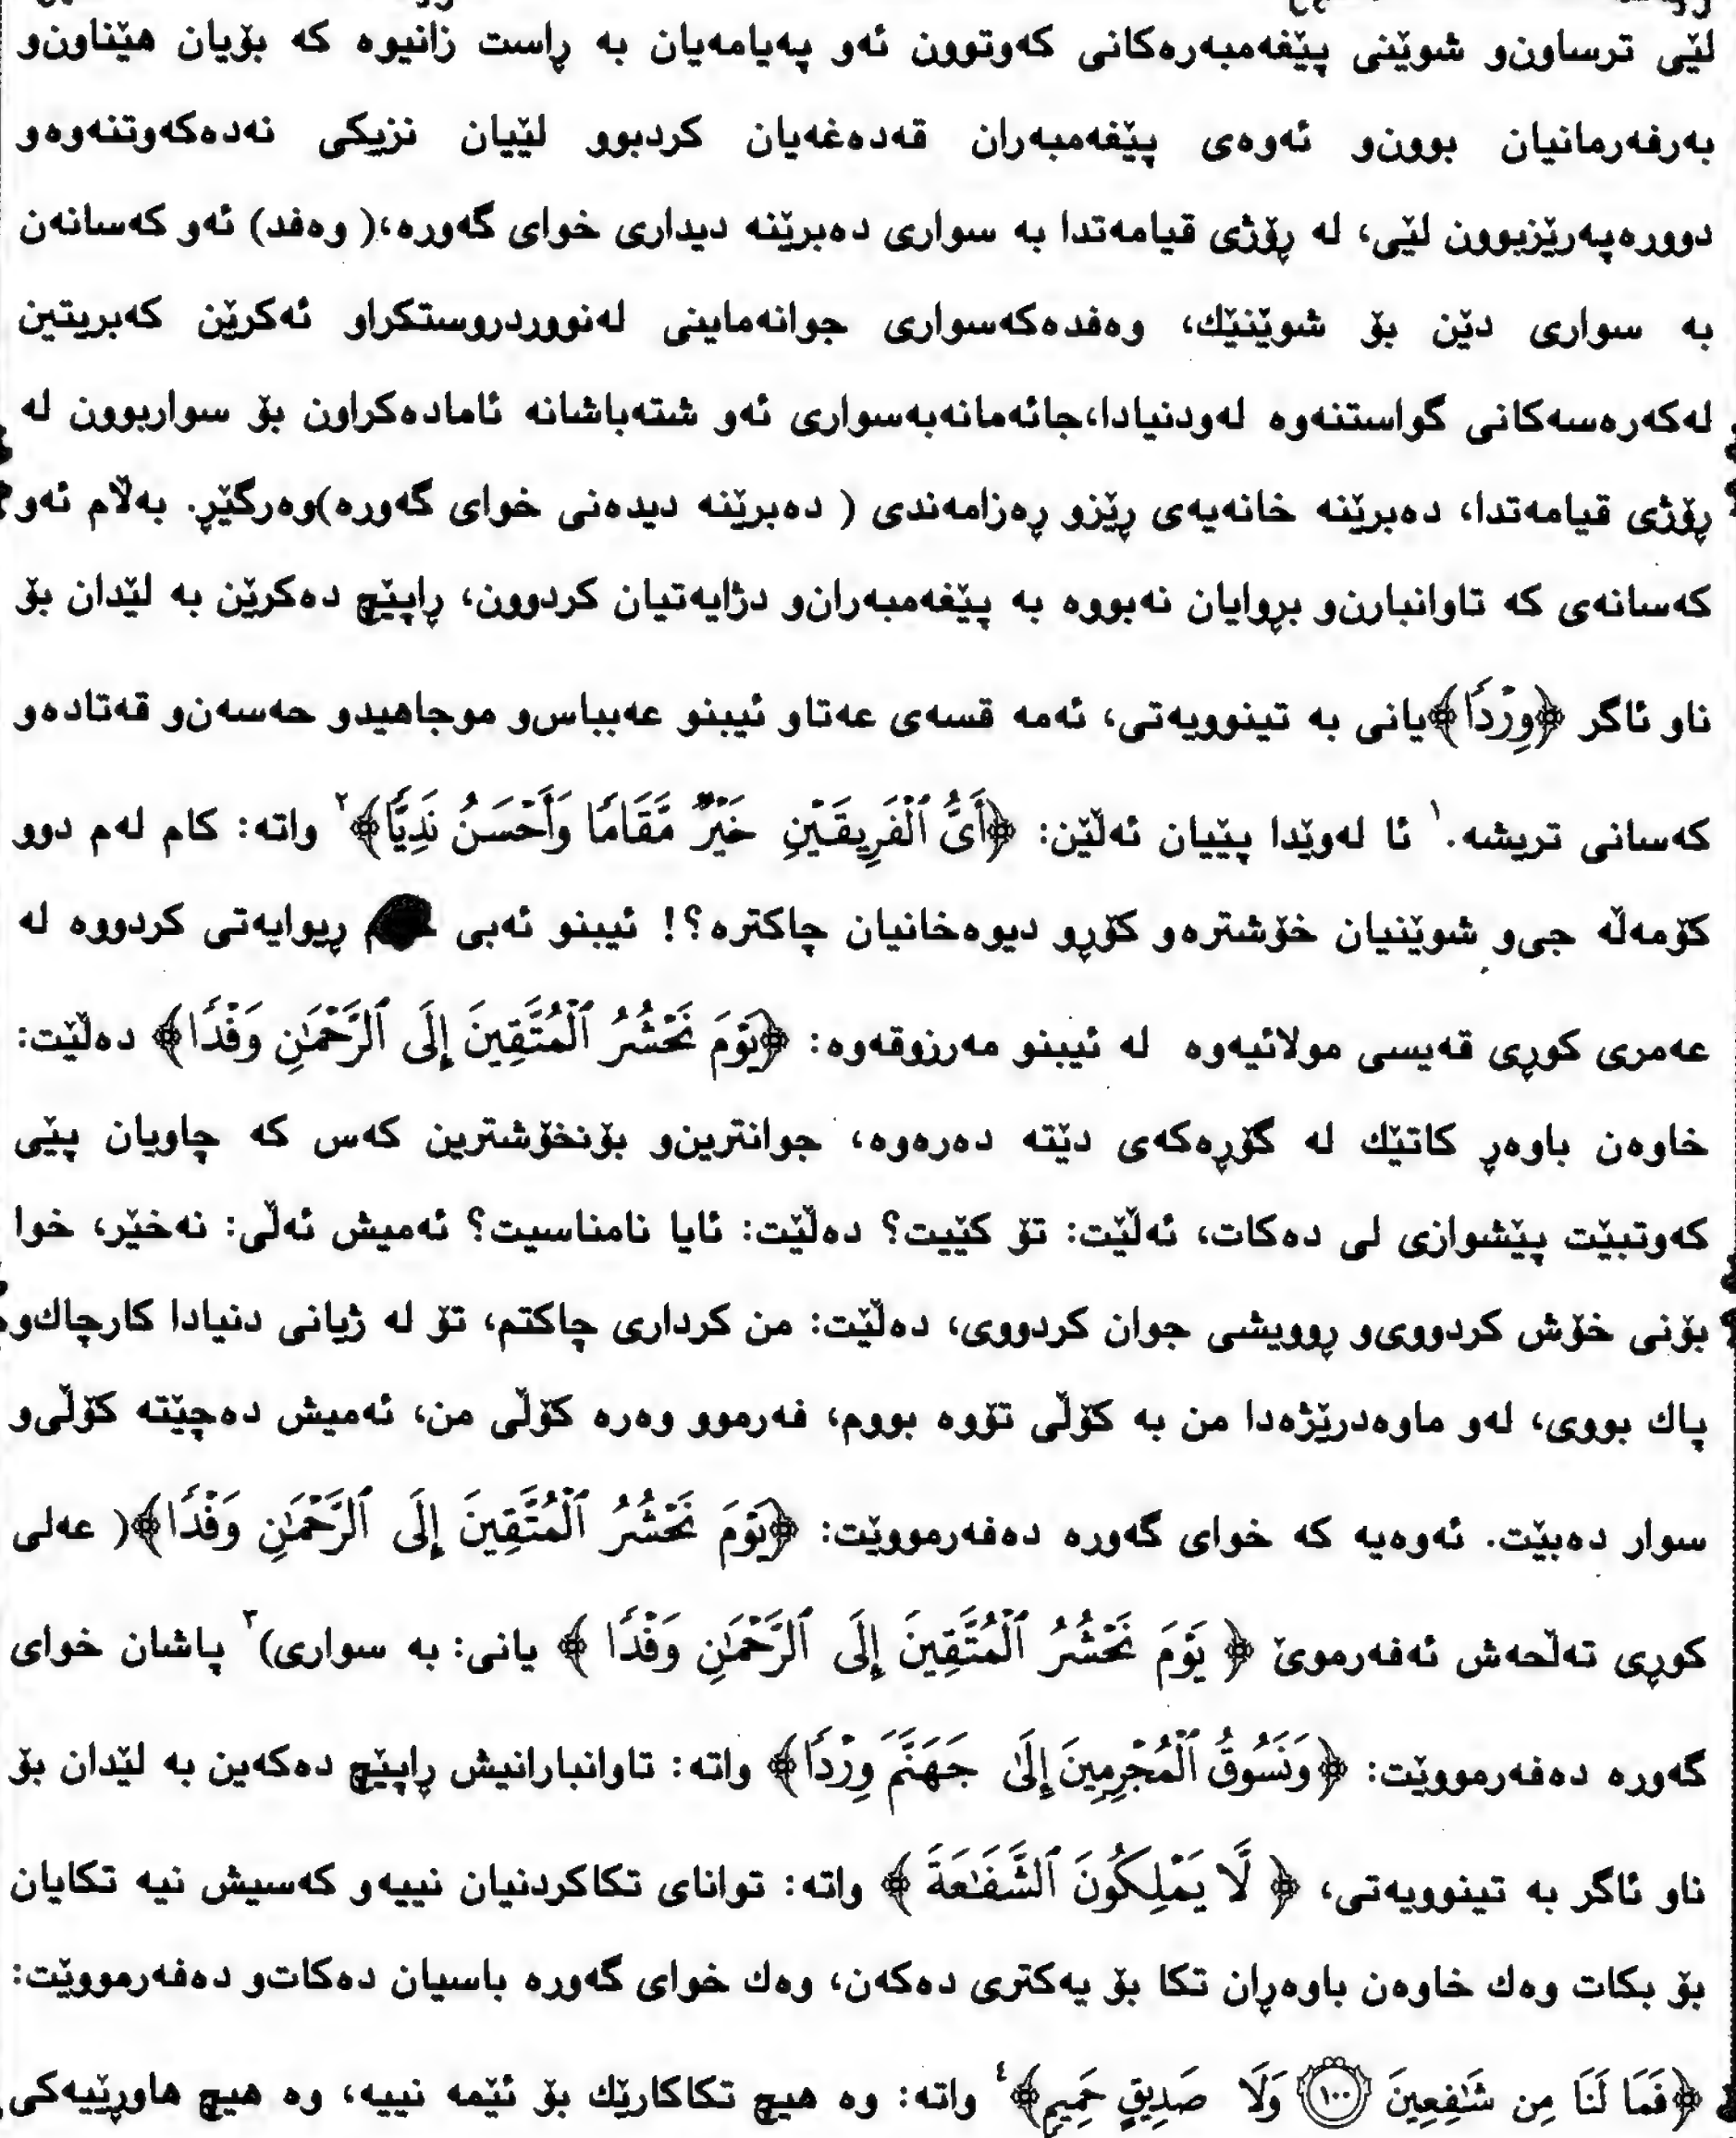 لێی ترساون‌و شوێنی پێغەمبەرەکانی کەوتوون ئەو پەیامەیان بە ڕاست زانیوە کە بۆیان هێناون‌و
بەرفەرمانیان بوون‌و ئەوەی پێغەمبەران قەدەغەیان کردبوو لێیان نزیکی نەدەکەوتنەوەو
دوورەپەرێزبوون لێی، لە ڕۆژی قیامەتدا بە سواری دەبرێنە دیداری خوای گەورە،( وەفد) ئەو کەسانەن
بە سواری دێن بۆ شوێنێك، وەفدەکەسواری جوانەماینی لەنووردروستکراو ئەکرێن کەبریتین
لەکەرەسەکانی گواستنەوە لەودنیادا،جائەمانەبەسواری ئەو شتەباشانە ئامادەکراون بۆ سواربوون لە
ڕۆژی قیامەتدا، دەبرێنە خانەیەی ڕێزو ڕەزامەندی ( دەبرێنە دیدەنی خوای گەورە)وەرگێڕ. بەڵام ئەو
کەسانەی کە تاوانبارن‌و بڕوایان نەبووە بە پێغەمبەران‌و دژایەتیان کردوون، ڕاپێچ دەکرێن بە لێدان بۆ
ناو ئاگر ﴿وِرۡدٗا﴾یانی بە تینوویەتی، ئەمە قسەی عەتاو ئیبنو عەبباس‌و موجاهیدو حەسەن‌و قەتادەو
کەسانی تریشە.١ ئا لەوێدا پێیان ئەڵێن: ﴿أَيُّ ٱلۡفَرِيقَيۡنِ خَيۡرٞ مَّقَامٗا وَأَحۡسَنُ نَدِيّٗا﴾٢ واتە: کام لەم دوو
کۆمەڵە جی‌و شوێنیان خۆشترەو کۆڕو دیوەخانیان چاکترە؟! ئیبنو ئەبی ڕیوایەتی کردووە لە
عەمری کوڕی قەیسی مولائیەوە لە ئیبنو مەرزوقەوە: ﴿يَوۡمَ نَحۡشُرُ ٱلۡمُتَّقِينَ إِلَى ٱلرَّحۡمَٰنِ وَفۡدٗا﴾ دەڵێت:
خاوەن باوەڕ کاتێك لە گۆڕەکەی دێتە دەرەوە، جوانترین‌و بۆنخۆشترین کەس کە چاویان پێی
کەوتبێت پێشوازی لی دەکات، ئەڵێت: تۆ کێیت؟ دەڵێت: ئایا نامناسیت؟ ئەمیش ئەڵی: نەخێر، خوا
بۆنی خۆش کردووی‌و ڕوویشی جوان کردووی، دەڵێت: من کرداری چاکتم، تۆ لە ژیانی دنیادا کارچاك‌و
پاك بووی، لەو ماوەدرێژەدا من بە کۆڵی تۆوە بووم، فەرموو وەرە کۆڵی من، ئەمیش دەچێتە کۆڵی‌و
سوار دەبێت. ئەوەیە کە خوای گەورە دەفەرمووێت: ﴿يَوۡمَ نَحۡشُرُ ٱلۡمُتَّقِينَ إِلَى ٱلرَّحۡمَٰنِ وَفۡدٗا﴾( عەلی
کوڕی تەڵحەش ئەفەرموێ ﴿ يَوۡمَ نَحۡشُرُ ٱلۡمُتَّقِينَ إِلَى ٱلرَّحۡمَٰنِ وَفۡدٗا ﴾ یانی: بە سواری)٣ پاشان خوای
گەورە دەفەرمووێت: ﴿وَنَسُوقُ ٱلۡمُجۡرِمِينَ إِلَىٰ جَهَنَّمَ وِرۡدٗا﴾ واتە: تاوانبارانیش ڕاپێچ دەکەین بە لێدان بۆ
ناو ئاگر بە تینوویەتی، ﴿ لَّا يَمۡلِكُونَ ٱلشَّفَٰعَةَ ﴾ واتە: توانای تکاکردنیان نییەو کەسیش نیە تکایان
بۆ بکات وەك خاوەن باوەڕان تکا بۆ یەکتری دەکەن، وەك خوای گەورە باسیان دەکات‌و دەفەرمووێت:
﴿فَمَا لَنَا مِن شَٰفِعِينَ ١٠٠ وَلَا صَدِيقٍ حَمِيمٖ﴾٤ واتە: وە هیچ تکاکارێك بۆ ئێمە نییە، وە هیچ هاوڕێیەکی